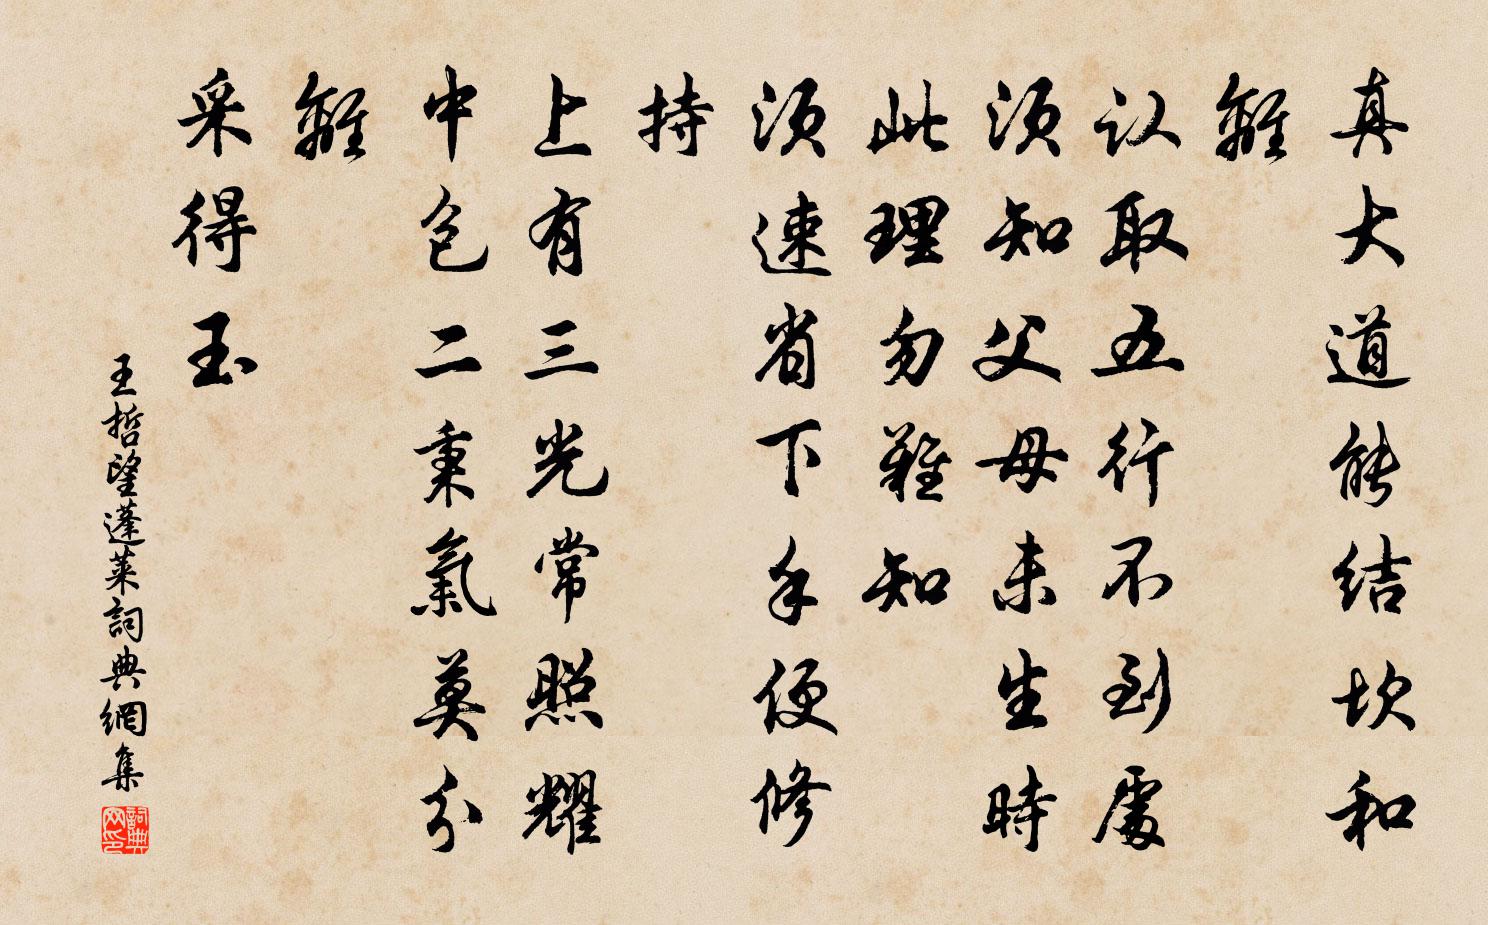 真大道能结坎和
離
认取五行不到處
须知父母未生時
此理勿難知
须速省下手便修
持
上有三光常照耀
中包二秉氣莫分
離
采得玉
王哲望蓬莱詞典網集
詞典网印